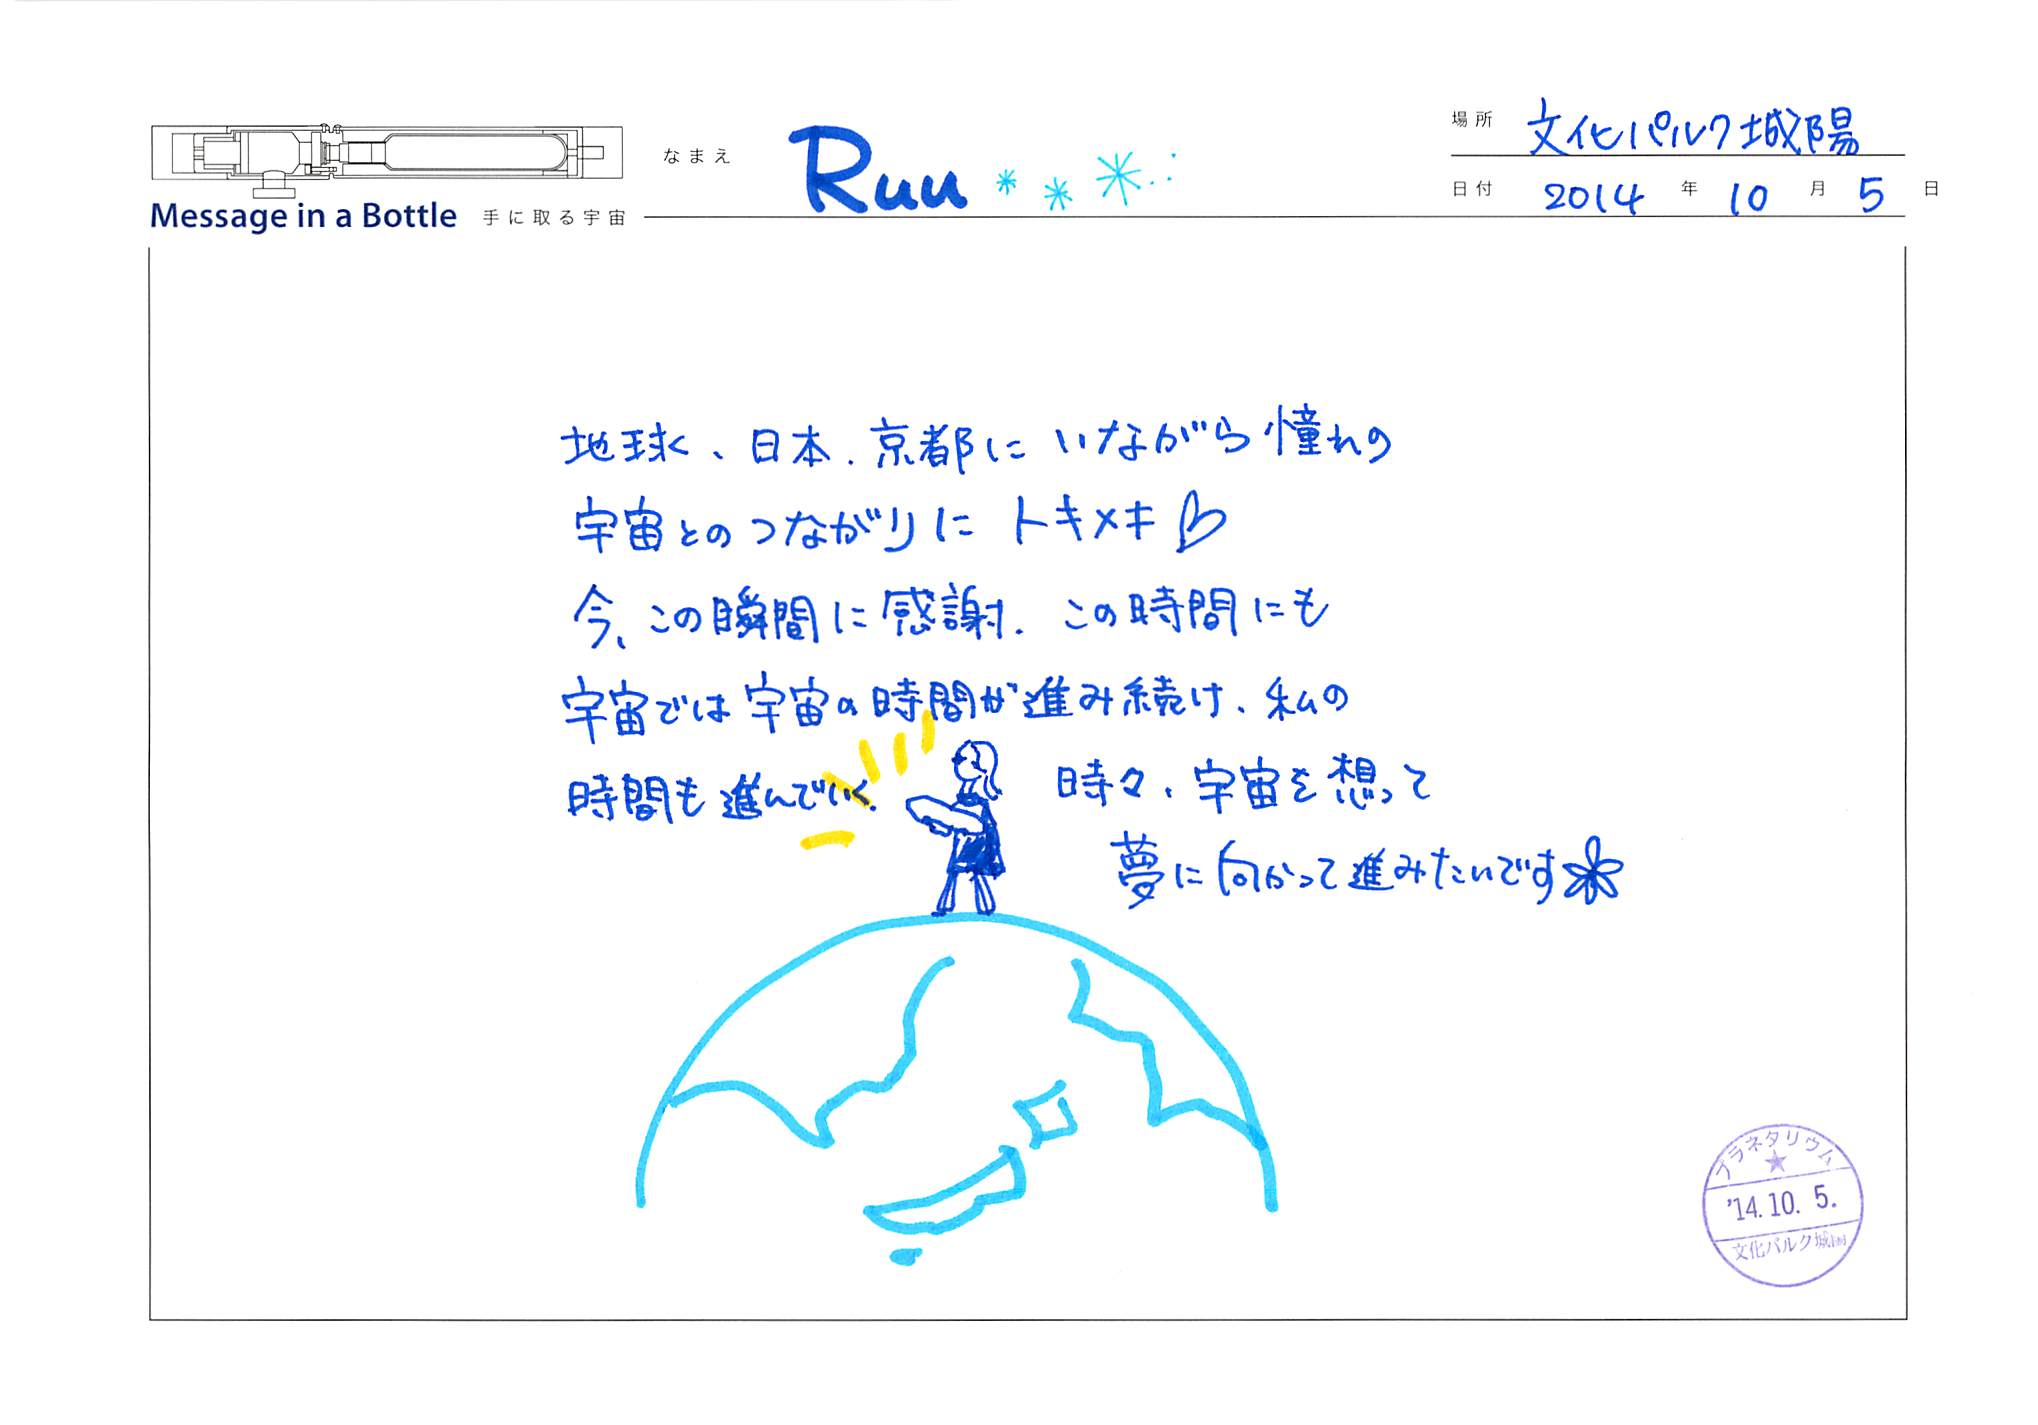 場所 文化パルク城陽
なまえ Ruu
日付 2014 年 10 月 5 日
Message in a Bottle 手に取る宇宙
地球、日本、京都にいながら憧れの
宇宙とのつながりにトキメキ♡
今、この瞬間に感謝. この時間にも
宇宙では宇宙の時間が進み続け、私の
時間も進んでいく.
時々、宇宙を想って
夢に向かって進みたいです
プラネタリウム
★
'14.10. 5.
文化パルク城陽